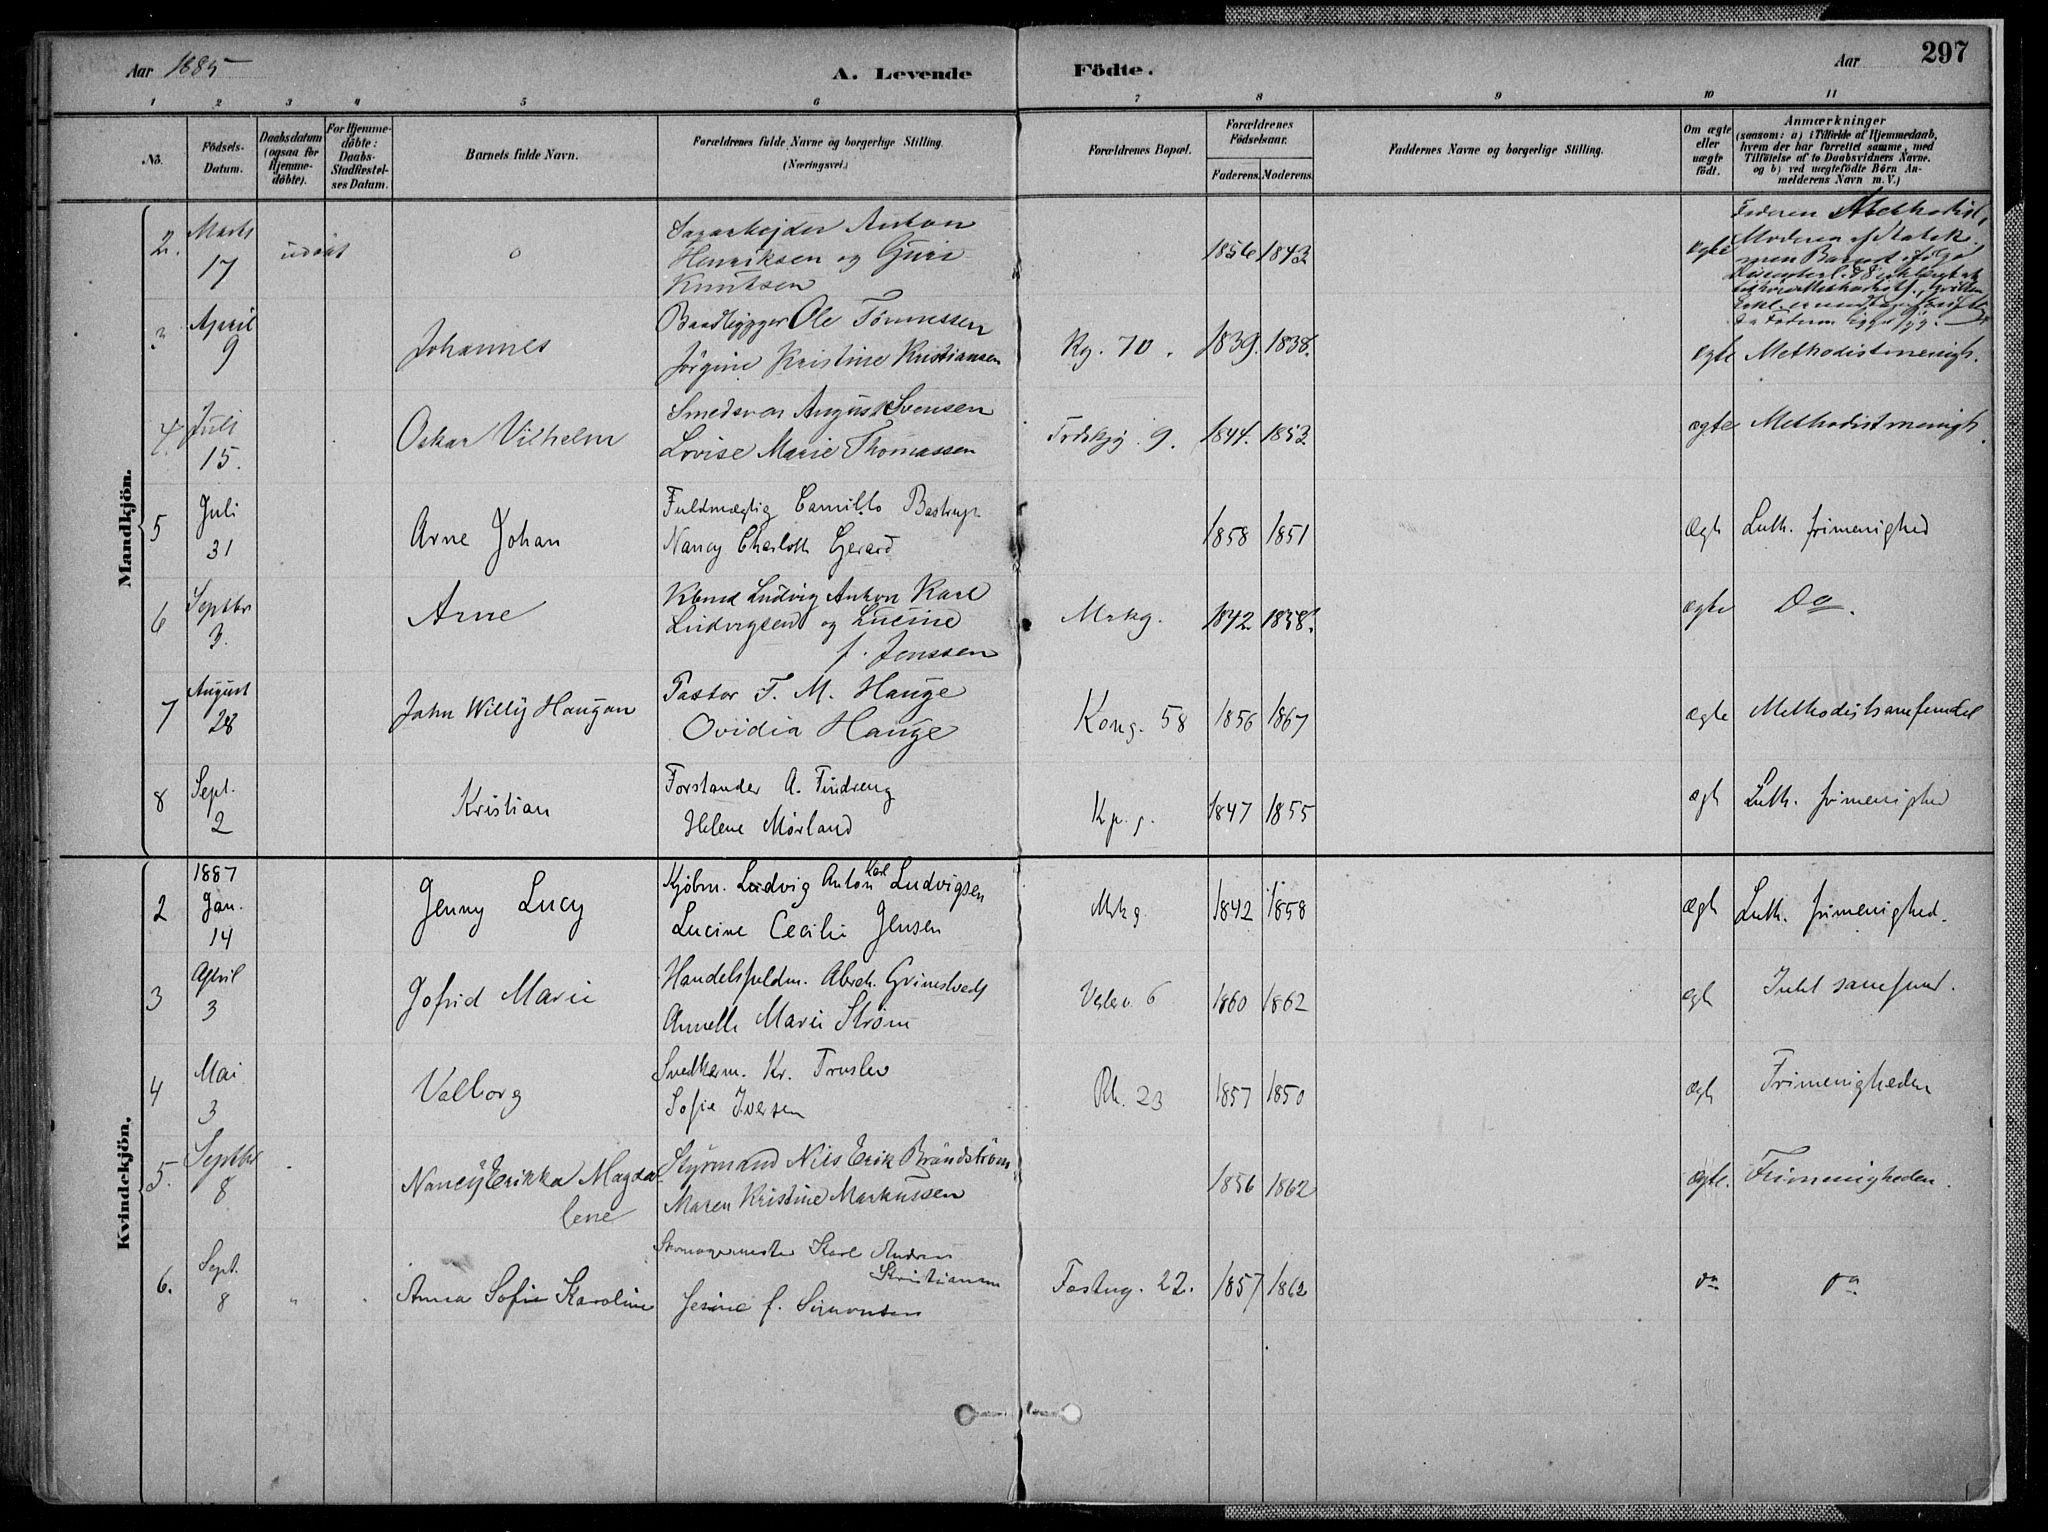 297
Aar 1885
A. Levende
Födte.
Aar
1 2 3 4 5 6 7 8 9 10 11
No.
Födsels-Datum.
Daabsdatum (ogsaa for Hjemme-döbte).
For Hjemme-döbte: Daabs-Stadfæstel-ses Datum.
Barnets fulde Navn.
Forældrenes fulde Navne og borgerlige Stilling.
(Næringsvei.)
Forældrenes Bopæl.
Forældrenes Födselsaar.
Faderens. Moderens.
Faddernes Navne og borgerlige Stilling.
Om ægte eller uægte födt.
Anmærkninger
(saasom: a) i Tilfælde af Hjemmedaab,
hvem der har forrettet samme, med
Tilföielse af to Daabsvidners Navne,
og b) ved uægtefödte Börn An-
melderens Navn m. V.)
Mandkjön.
2. Marts 17 udøbt
Anton
Henriksen og Guri
Knutsen
1856 1843 ægte
Faderen Methodist,
Moderen af Statsk.
men Barnet
3 April 9
Johannes
Baadbygger Ole Tønnessen
Jørgine Kristine Kristiansen
Kg. 70. 1839. 1838. ægte Methodistmenigh.
4. Juli 15.
Oskar Vilhelm
Smedsven August Svensen
Lovise Marie Thomassen
9. 1844. 1853. ægte Methodistmenigh.
5 Juli 31
Arne Johan
Fuldmægtig Camillo Bastrup
Nancy Charloth Gerard
1858 1851 Ægt Luth. frimenighed
6 Septbr 3.
Arne
Kbmd Ludvig Anton Karl
Ludvigsen og Lucine
f. Jenssen
Mrkg. 1842. 1858. ægte Do.
7 August 28
John Willy Haugan
Pastor F. M. Hauge
Ovidia Hauge
Kong. 58 1856 1867 ægte Methodistsamfundet
8 Sept. 2
Kristian
Forstander A. Tindreng
Helene Mørland
Kp. g. 1847 1855 ægt Luth. frimenighed
Kvindekjön.
2 1887 Jan. 14
Jenny Lucy
Kjøbm. Ludvig Anton Karl Ludvigsen
Lucine Cecilie Jensen
Mrkg. 1842 1858 Ægt Luth. frimenighed.
3 April 3
Jofrid Marie
Handelsfuldm. Grimstvedt
Annette Marie Strøm
6 1860 1862 ægt samfund.
4 Mai 3
Valborg
Kr.
Sofie Iversen
23 1857 1850 Ægt Frimenigheden
5. Septbr 8
Nancy Erikka Magda
lene
Styrmand Nils Erik Brändström
Maren Kristine Markussen
1856 1862 ægte. Frimenigheden.
6. Sept. 8 " "
Anna Sofie Karoline
Skomagermester Karl Andreas
Kristiansen
Jesine f. Simonsen
Fæstng. 22. 1857 1862 do do